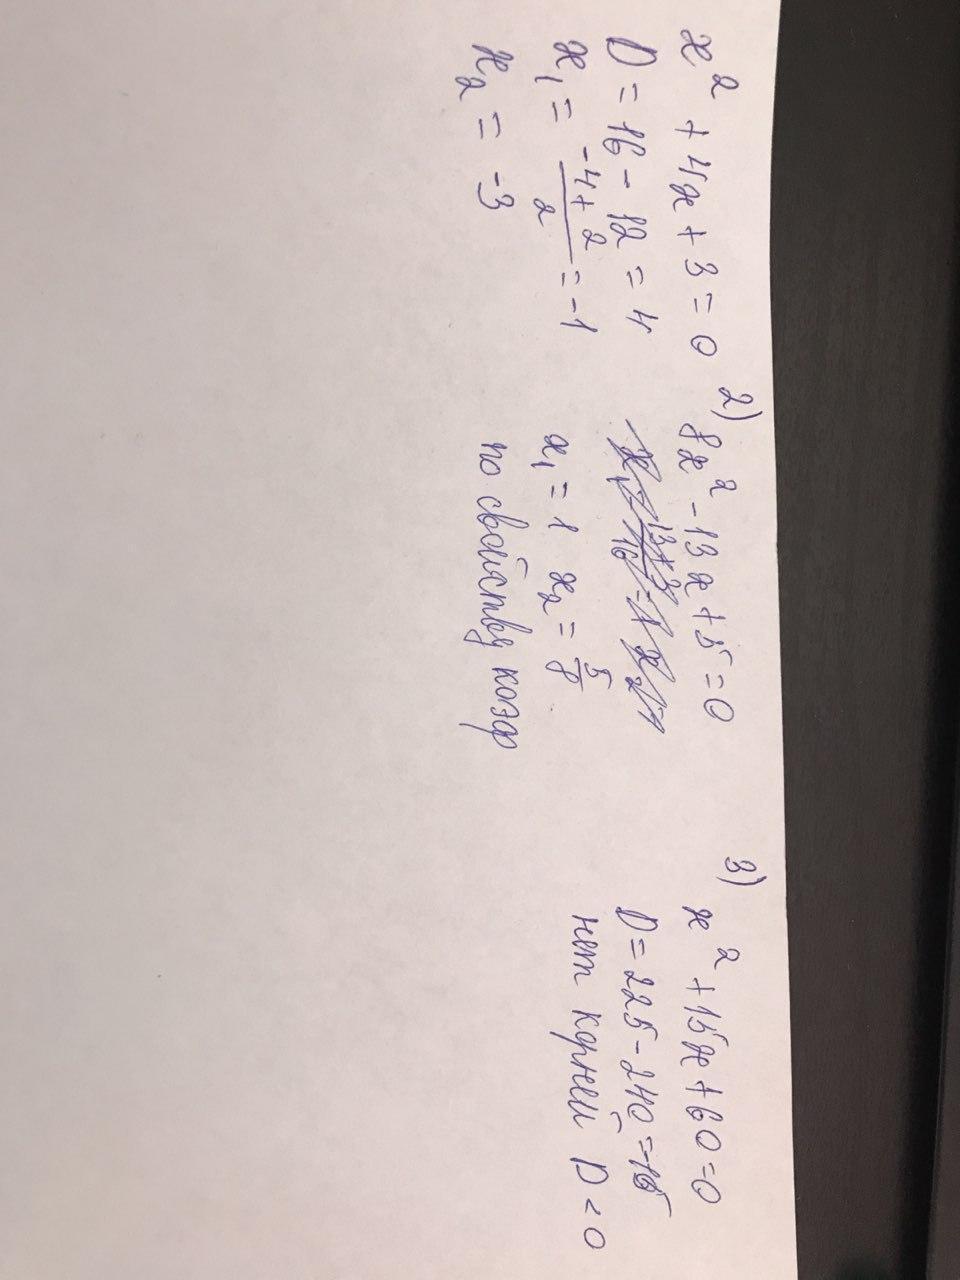 x² + 4x + 3 = 0
D = 16 - 12 = 4
x₁ = (-4 + 2)/2 = -1
x₂ = -3
2) 8x² - 13x + 5 = 0
x₁ = 1 x₂ = 5/8
по свойству коэф
3) x² + 15x + 60 = 0
D = 225 - 240 = -15
нет корней D < 0